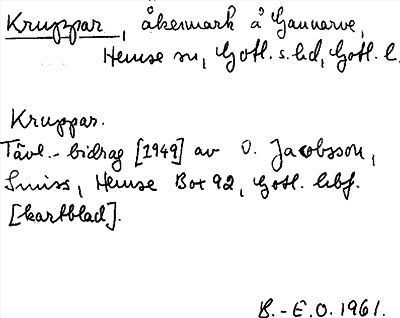 Kruppar, åkermark å Gannarve,
Hemse sn, Gotl. s. hd, Gotl. l.
Kruppar.
Tävl.-bidrag [1949] av O. Jacobsson,
Smiss, Hemse Box 92, Gotl. hbf.
[kartblad].
B.-E.O. 1961.